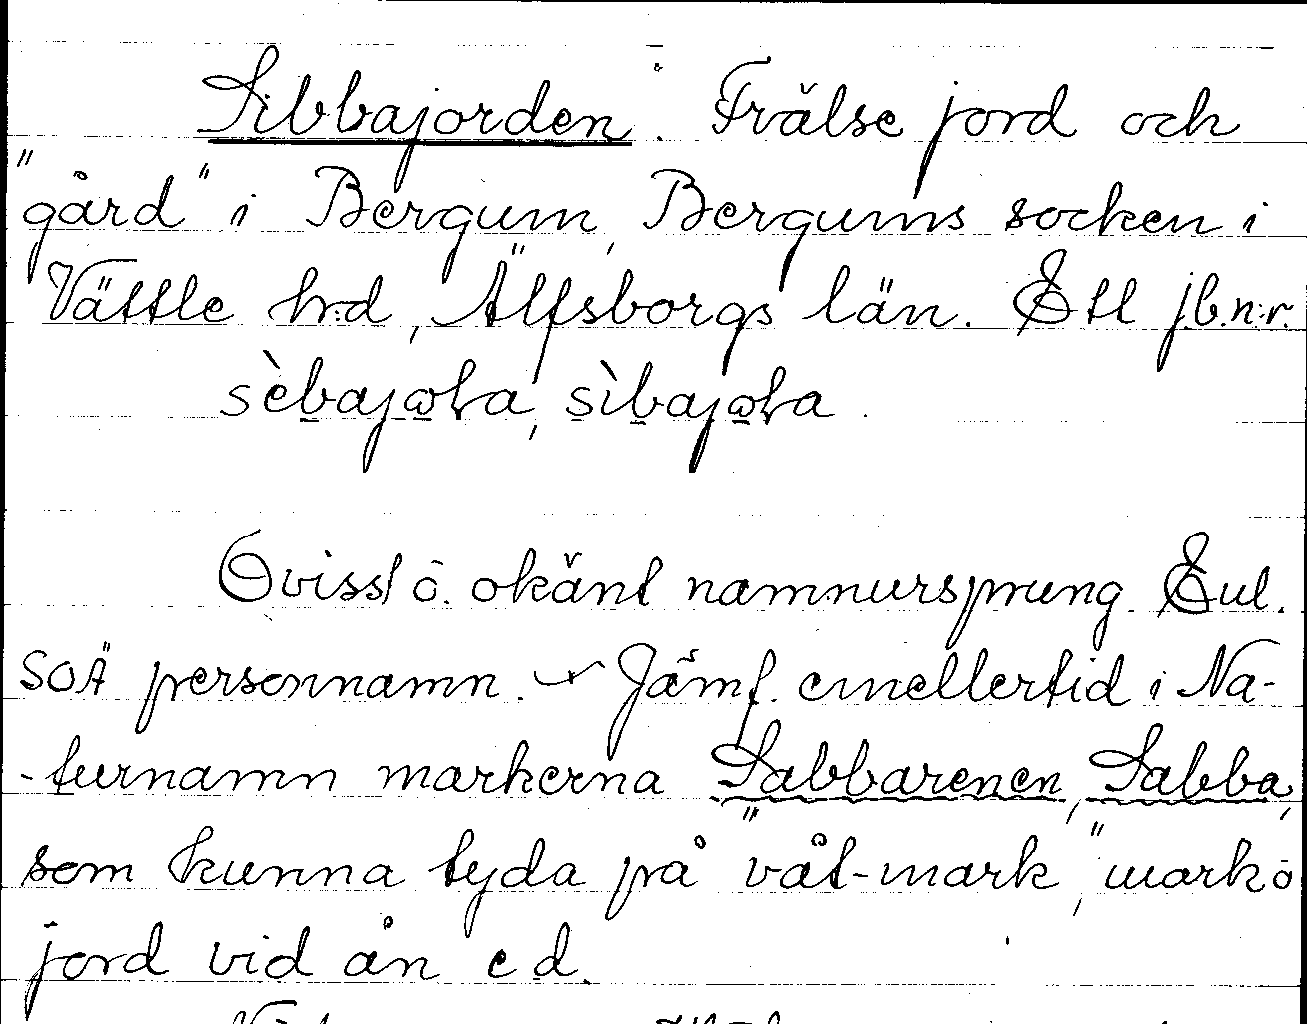 Sibbajorden. Frälse jord och
"gård" i Bergum, Bergums socken i
Vättle h:d, Älfsborgs län. Ett jb.n:r.
sèbajoɽa, sìbajoɽa.
Ovisst o. okänt namnursprung.
som personnamn. Jämf. emellertid i Na-
-turnamn markerna Sabbarenen, Sabba,
som kunna tyda på "våt-mark", mark o
jord vid ån e d.